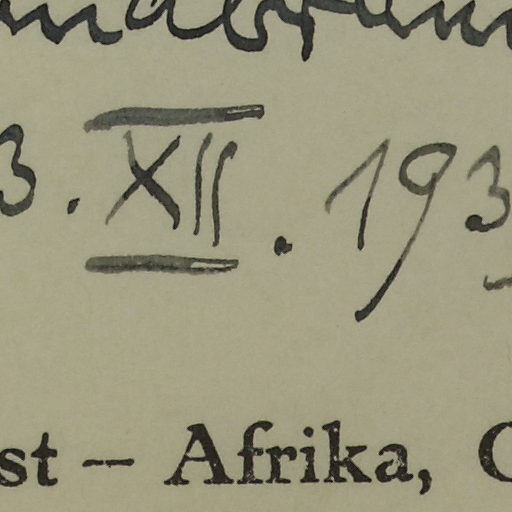 3. XII. 193
st – Afrika,